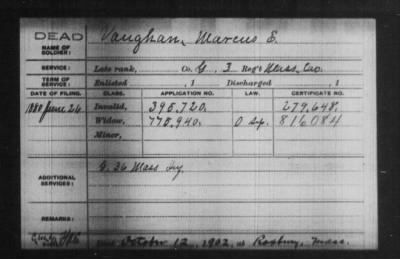 DEAD
NAME OF SOLDIER: Vaughan, Marcus E.
SERVICE: Late rank, Co. G, 3 Reg't Mass. Cav.
TERM OF SERVICE: Enlisted , 1 Discharged , 1
DATE OF FILING. CLASS. APPLICATION NO. LAW. CERTIFICATE NO.
1880 June 26 Invalid, 395.720. 279.648.
Widow, 770.940. 816084
Minor,
ADDITIONAL SERVICES: G. 36 Mass Inf
REMARKS:
Died October 12, 1902, at Roxbury, Mass.